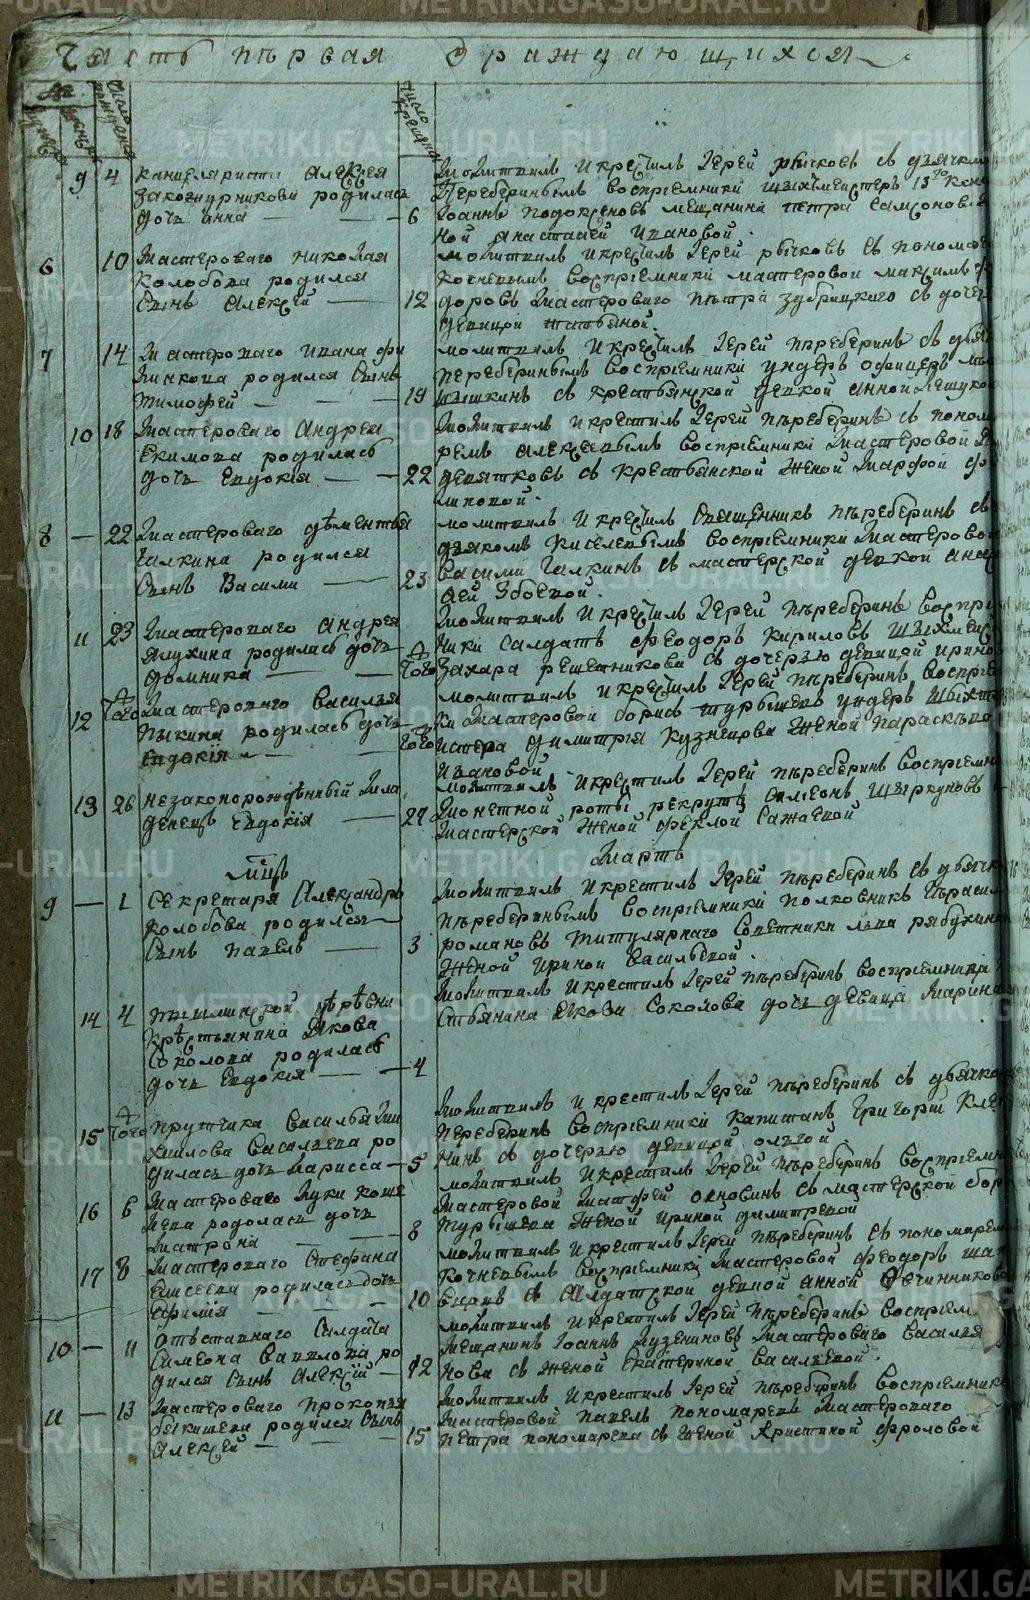 Часть первая о раждающихся
число рождения
число крещения
9 4 канцеляриста Алексея
Закожурникова родилась
дочь Анна
6
молитвилъ и крестилъ Іерей рычковъ съ дьячкомъ
Перебериныымъ восприемники
Іоаннъ мещанина петра самсонова
ной анастасией ивановой.
6 10 мастероваго николая
Колобова родился
сынъ Алексей
12
молитвилъ и крестилъ Іерей рычковъ съ пономаре
Кочневымъ восприемники мастеровой максимъ фе
доровъ мастероваго петра зубрицкаго съ дочер
девицей татьяной.
7 14 мастероваго ивана фи
линкова родился сынъ
тимофей
19
молитвилъ и крестилъ Іерей переберинъ съ дьяч
перебериныымъ восприемники ундеръ офицеръ
шишкинъ съ крестьянской девкой анной
10 18 мастероваго Андрея
Екимова родилась
дочь Евдокія
22
молитвилъ и крестилъ Іерей переберинъ съ понома
ремъ алексеевымъ восприемники мастеровой
девятковъ съ крестьянской женой марфой фи
липовой.
8 22 мастероваго дементья
галкина родился
сынъ Васили
23
молитвилъ и крестилъ священникъ переберинъ съ
дьякомъ киселевымъ восприемники мастеровой
Васили галкинъ съ мастерской девкой анас
11 23 мастероваго андрея
ялухина родилась дочь
домника
того
молитвилъ и крестилъ Іерей переберинъ воспри
ники салдатъ феодоръ кириловъ
Захара решетникова съ дочерью девицей ириной
12 того мастероваго василья
пыкина родилась дочь
евдокия
того
молитвилъ и крестилъ Іерей переберинъ восприем
ки мастеровой борисъ турышевъ ундеръ
димитрія кузнецова женой параскевой
ивановой
13 26 незаконорожденный мла
денецъ Евдокія
27
молитвилъ и крестилъ Іерей переберинъ восприемни
монетной роты рекрутъ симеонъ
мастерской женой феклой сажаевой
мцъ Мартъ
9 1 секретаря Александра
колобова родился
сынъ павелъ
3
молитвилъ и крестилъ Іерей переберинъ съ дьячко
перебериныымъ восприемники полковникъ герасим
романовъ титулярнаго советника льва рябухина
женой ириной васильевой.
14 4 пышминской деревни
крестьянина якова
соколова родилась
дочь Евдокія
4
молитвилъ и крестилъ Іерей переберинъ восприемница
стьянина якова соколова дочь девица марина
15 того прутчика василья ми
хаилова васильева ро
дилась дочь ларисса
5
молитвилъ и крестилъ Іерей переберинъ съ дьячко
переберинъ восприемники капитанъ григорій клеп
нинъ съ дочерью девицей ольгой
16 6 мастероваго луки коше
лева родолась дочь
матрона
8
молитвилъ и крестилъ Іерей переберинъ восприемни
мастеровой матфей сановинъ съ мастерской бор
турышева женой ириной димитревой
17 8 мастероваго стефана
елисеева родилась дочь
10
молитвилъ и крестилъ Іерей переберинъ съ пономарем
кочневымъ восприемники мастеровой феодоръ
съ салдатской девкой анной овчинниково
10 11 отъставнаго салдата
симеона вавилова ро
дился сынъ алексій
12
молитвилъ и крестилъ Іерей переберинъ восприем
мещанинъ Іоаннъ кузениновъ мастероваго василья
нова съ женой екатериной васильевой.
11 13 мастероваго прокопья
быкишева родился сынъ
алексей
15
молитвилъ и крестилъ Іерей переберинъ восприемник
мастеровой павелъ пономаревъ мастероваго
петра пономарева съ женой христиной фроловой
METRIKI.GASO-URAL.RU